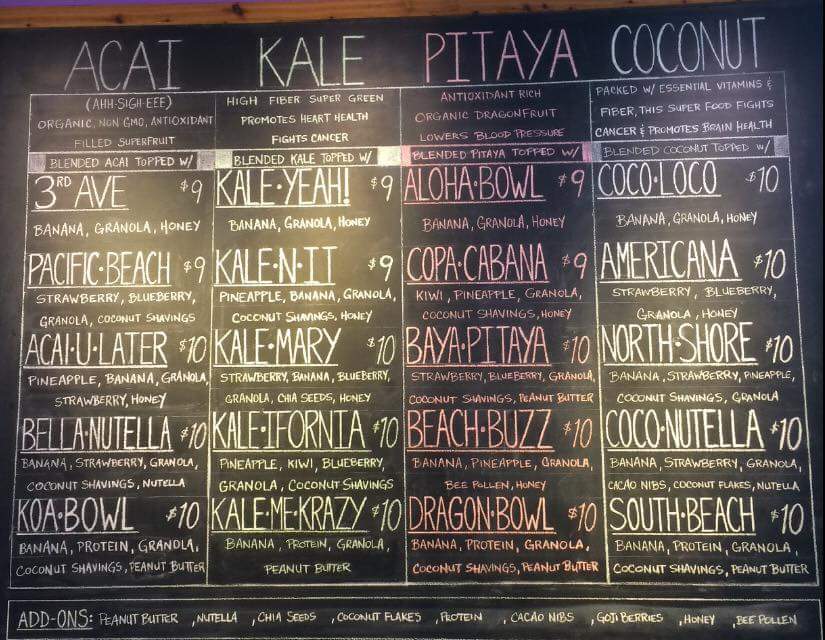 ACAI
(AHH·SIGH·EEE)
ORGANIC, NON GMO, ANTIOXIDANT
FILLED SUPERFRUIT
BLENDED ACAI TOPPED W/
3RD AVE $9
BANANA, GRANOLA, HONEY
PACIFIC·BEACH $9
STRAWBERRY, BLUEBERRY,
GRANOLA, COCONUT SHAVINGS
ACAI·U·LATER $10
PINEAPPLE, BANANA, GRANOLA,
STRAWBERRY, HONEY
BELLA·NUTELLA $10
BANANA, STRAWBERRY, GRANOLA,
COCONUT SHAVINGS, NUTELLA
KOA·BOWL $10
BANANA, PROTEIN, GRANOLA,
COCONUT SHAVINGS, PEANUT BUTTER
KALE
HIGH FIBER SUPER GREEN
PROMOTES HEART HEALTH
FIGHTS CANCER
BLENDED KALE TOPPED W/
KALE·YEAH! $9
BANANA, GRANOLA, HONEY
KALE·N·IT $9
PINEAPPLE, BANANA, GRANOLA,
COCONUT SHAVINGS, HONEY
KALE·MARY $10
STRAWBERRY, BANANA, BLUEBERRY,
GRANOLA, CHIA SEEDS, HONEY
KALE·IFORNIA $10
PINEAPPLE, KIWI, BLUEBERRY,
GRANOLA, COCONUT SHAVINGS
KALE·ME·KRAZY $10
BANANA, PROTEIN, GRANOLA,
PEANUT BUTTER
PITAYA
ANTIOXIDANT RICH
ORGANIC DRAGONFRUIT
LOWERS BLOOD PRESSURE
BLENDED PITAYA TOPPED W/
ALOHA·BOWL $9
BANANA, GRANOLA, HONEY
COPA·CABANA $9
KIWI, PINEAPPLE, GRANOLA,
COCONUT SHAVINGS, HONEY
BAYA·PITAYA $10
STRAWBERRY, BLUEBERRY, GRANOLA,
COCONUT SHAVINGS, PEANUT BUTTER
BEACH·BUZZ $10
BANANA, PINEAPPLE, GRANOLA,
BEE POLLEN, HONEY
DRAGON·BOWL $10
BANANA, PROTEIN, GRANOLA,
COCONUT SHAVINGS, PEANUT BUTTER
COCONUT
PACKED W/ ESSENTIAL VITAMINS &
FIBER, THIS SUPER FOOD FIGHTS
CANCER & PROMOTES BRAIN HEALTH
BLENDED COCONUT TOPPED W/
COCO·LOCO $10
BANANA, GRANOLA, HONEY
AMERICANA $10
STRAWBERRY, BLUEBERRY,
GRANOLA, HONEY
NORTH·SHORE $10
BANANA, STRAWBERRY, PINEAPPLE,
COCONUT SHAVINGS, GRANOLA
COCO·NUTELLA $10
BANANA, STRAWBERRY, GRANOLA,
CACAO NIBS, COCONUT FLAKES, NUTELLA
SOUTH·BEACH $10
BANANA, PROTEIN, GRANOLA,
COCONUT SHAVINGS, PEANUT BUTTER
ADD-ONS: PEANUT BUTTER , NUTELLA , CHIA SEEDS , COCONUT FLAKES , PROTEIN , CACAO NIBS , GOJI BERRIES , HONEY , BEE POLLEN